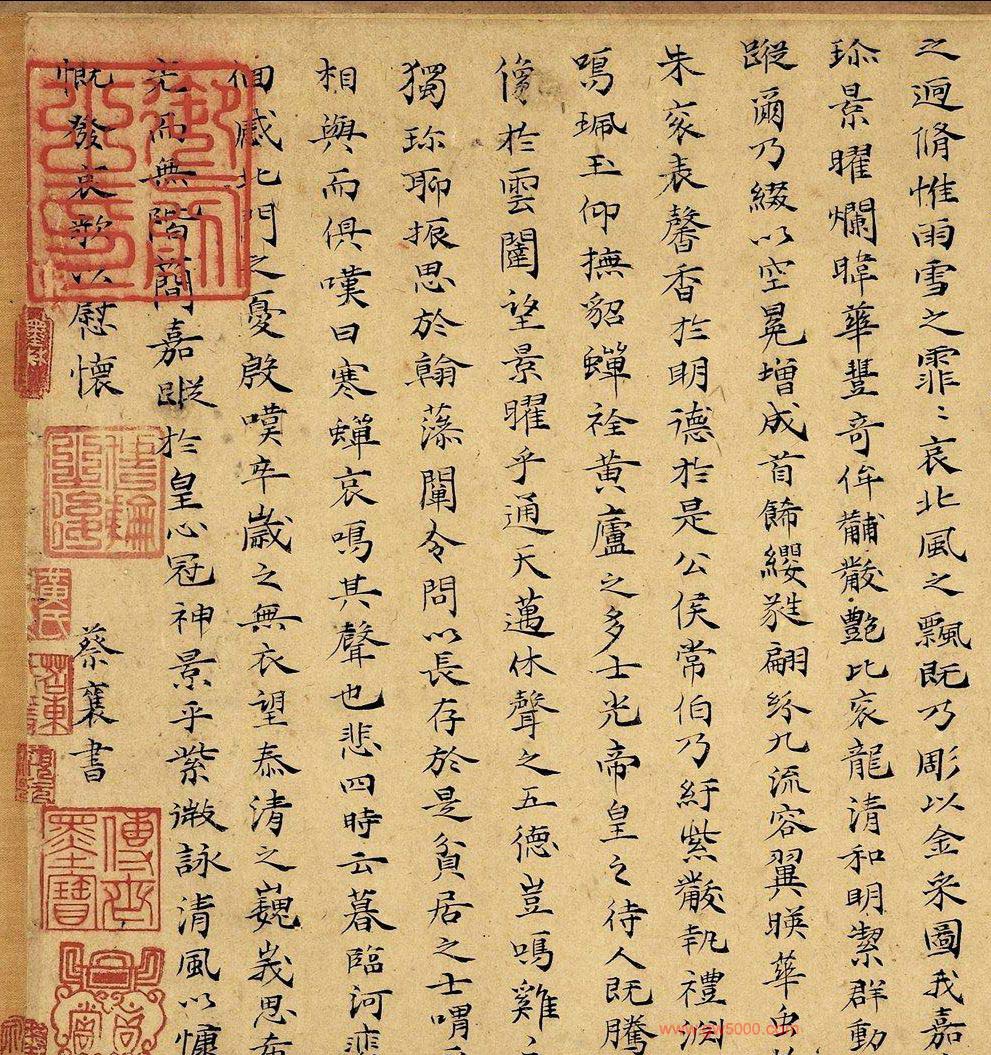 之迥脩惟雨雪之霏〻哀北風之飄既乃彫以金采圖我嘉
珎景曜爛暐華豐奇侔黼黻艷比袞龍清和明潔群動
蹤爾乃綴以空晃增成首飾纓蕤翩紛九流容翼暎華
朱袞表馨香於明德於是公侯常伯乃紆紫黻執禮
鳴珮玉仰撫貂蟬袨黃廬之多士光帝皇之待人既騰
像於雲闈望景曜乎通天邁休聲之五德豈鳴雞
獨珎聊振思於翰藻闡令問以長存於是貧居之士喟
相與而俱嘆曰寒蟬哀鳴其聲也悲四時云暮臨河
個感北門之憂殷嘆卒歲之無衣望泰清之巍峩思
光而無階簡嘉蹤於皇心冠神景乎紫微詠清風以慷
慨發哀歌以慰懷
蔡襄書
傅齊墨寶
www.yw5000.com